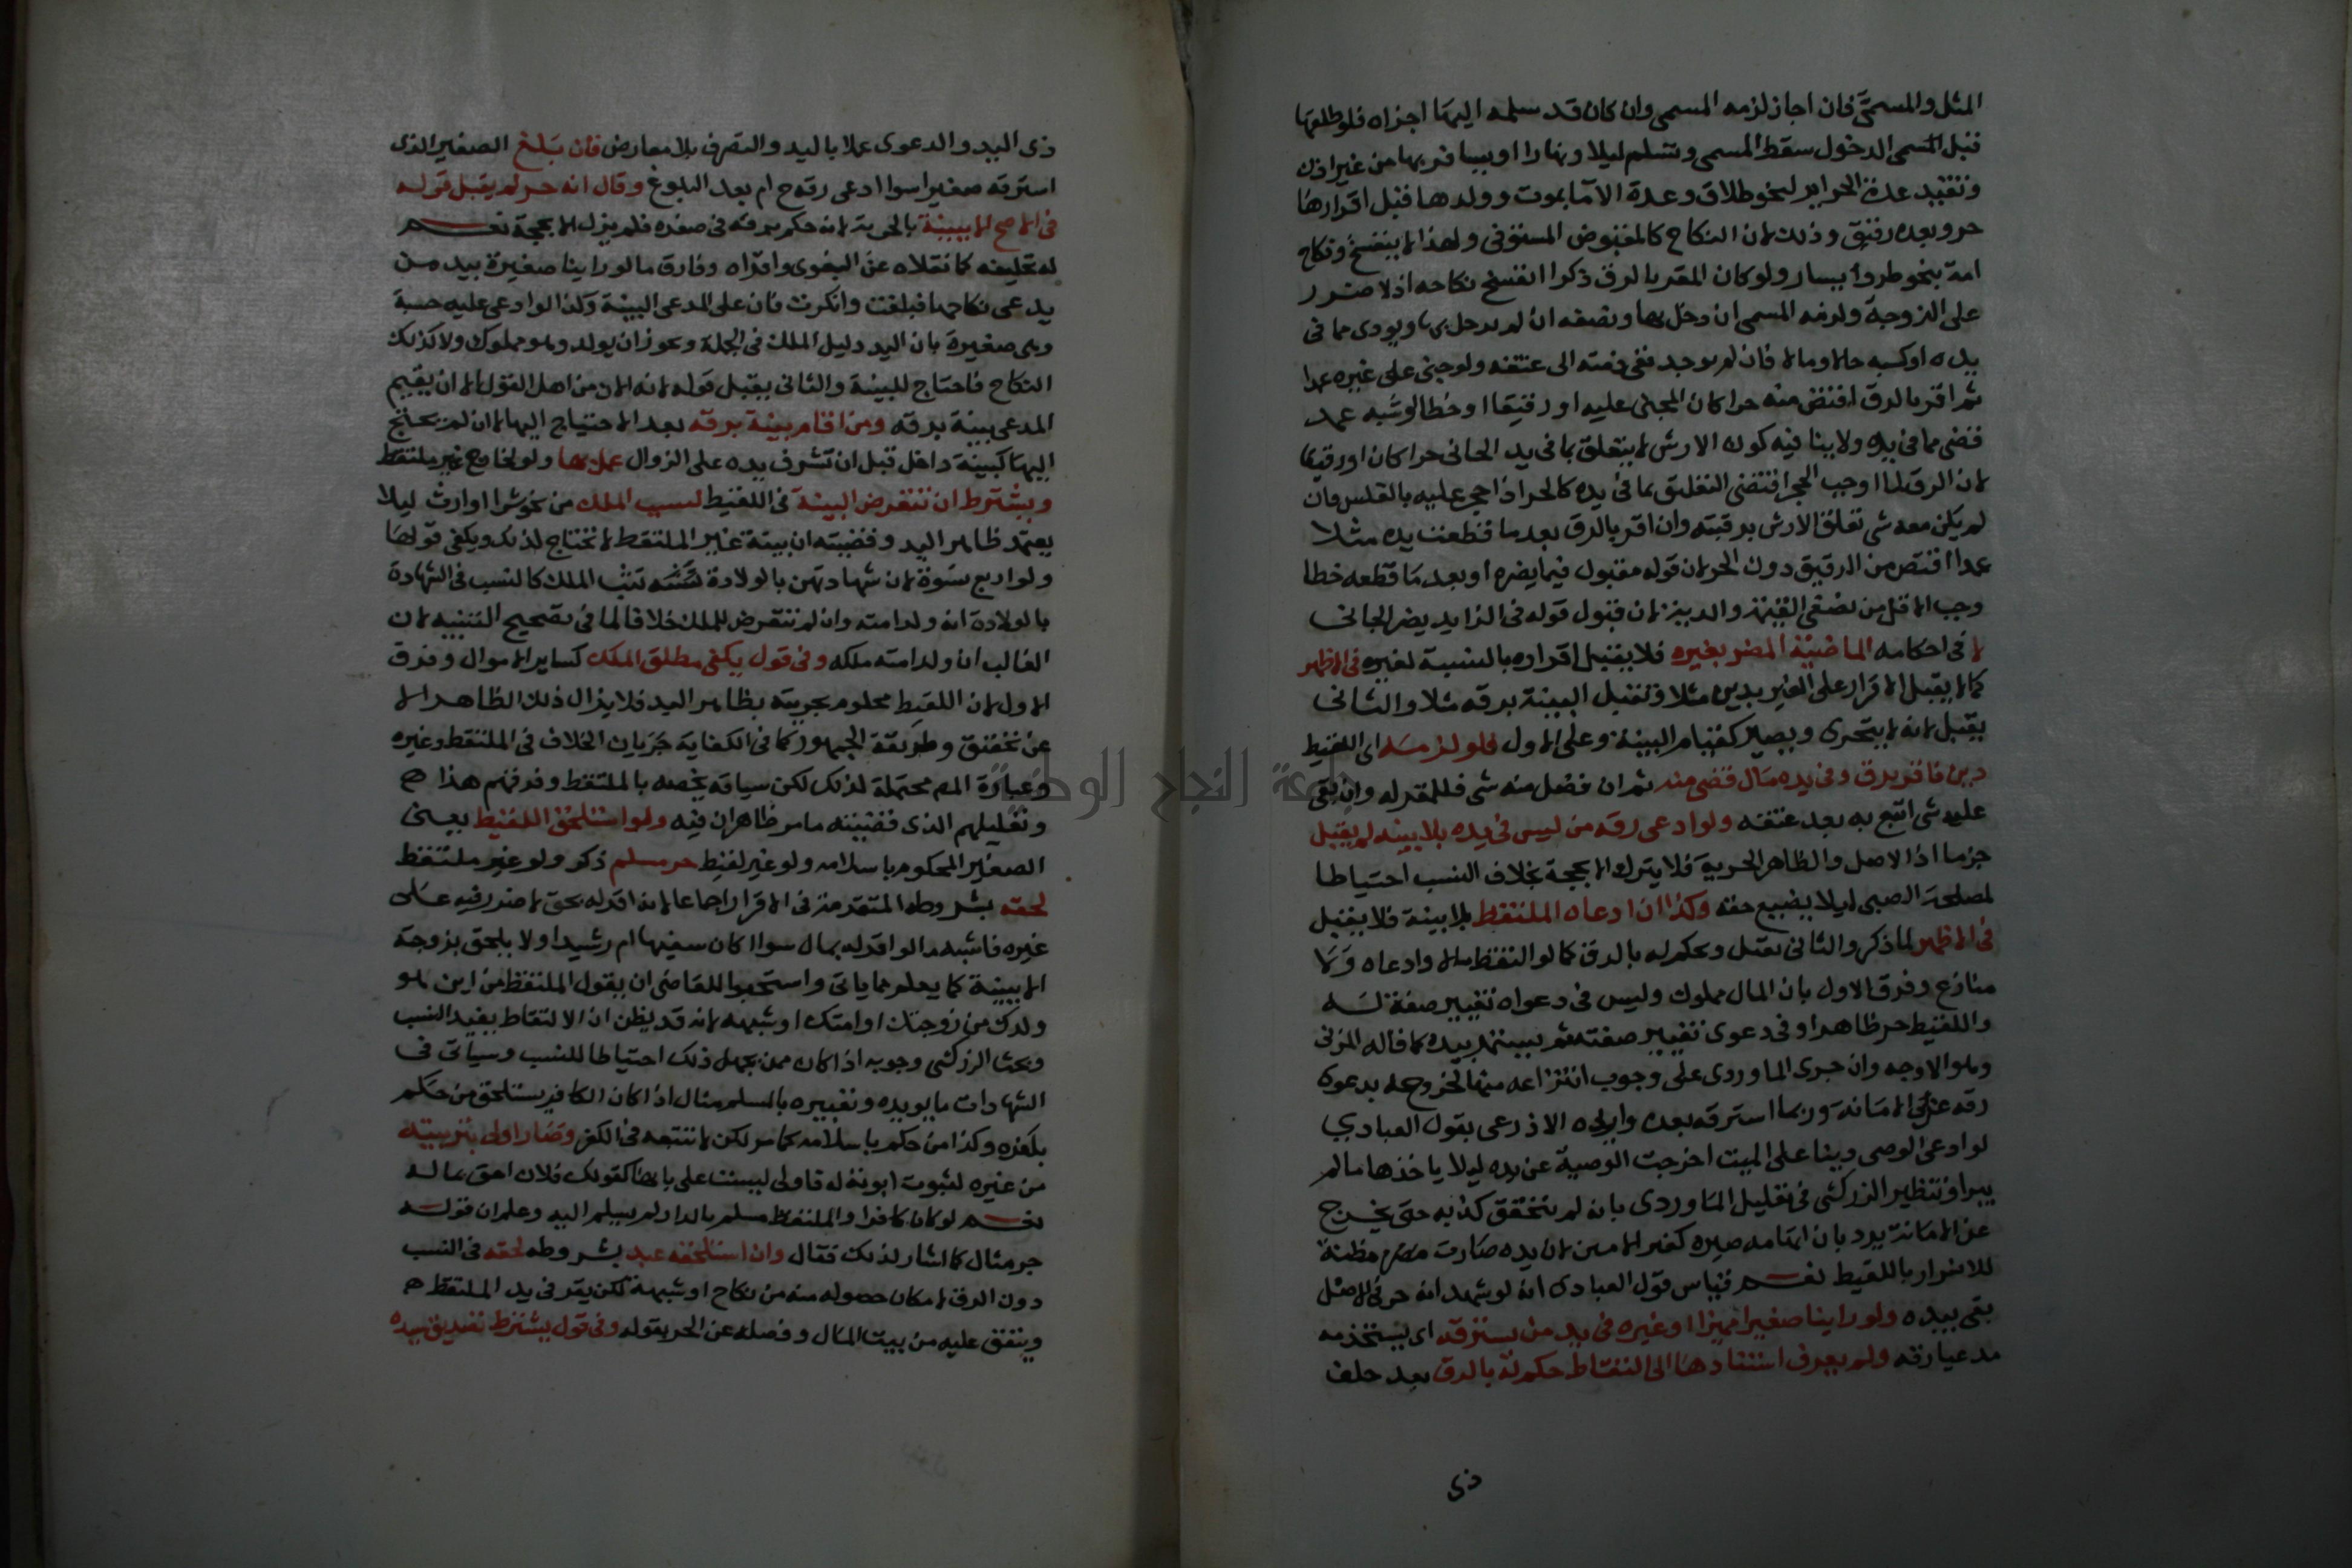 المثل والمسمى فان اجاز لزمه المسمى وان كان قد سلمه اليها اجزاه فلو طلقها
قبل الدخول سقط المسمى وتسلم ليلا ونهارا ويسافر بها من غير اذن
وتعتد عدة الحراير لنحو طلاق وعدة الاما بموت وولدها قبل اقرارها
حر وبعده رقيق وذلك لان النكاح كالمقبوض المستوفى ولهذا لا ينفسخ نكاح
امة بنحو طروا يسار ولو كان المقر بالرق ذكرا انفسخ نكاحه اذ لا ضرر
على الزوجة ولزمه المسمى ان دخل بها ونصفه ان لم يدخل بها ويودى مما فى
يده او كسبه حالا ومالا فان لم يوجد ففى ذمته الى عتقه ولو جنى على غيره عمدا
ثم اقر بالرق اقتص منه حرا كان المجنى عليه او رقيقا او خطا او شبه عمد
قضى مما فى يده ولا ينافيه كون الارش لا يتعلق بما فى يد الجانى حرا كان او رقيقا
لان الرق لما اوجب الحجر اقتضى التعلق بما فى يده كالحر اذا حجر عليه بالفلس فان
لم يكن معه شى تعلق الارش برقبته وان اقر بالرق بعد ما قطعت يده مثلا
عمدا اقتص من الرقيق دون الحر لان قوله مقبول فيما يضره او بعد ما قطعه خطا
وجب الاقل من نصفى القيمة والدية لان قبول قوله فى الزايد يضر الجانى
لا فى احكامه الماضية المضر بغيره فلا يقبل اقراره بالنسبة لغيره فى الاظهر
كما لا يقبل الاقرار على الغير بدين مثلا وتقبل البينة برقه مثلا والثانى
يقبل لانه لا يتجزى ويصير كقيام البينة وعلى الاول فلو لزمه اى اللقيط
دين فاقر برق وفى يده مال قضى منه ثم ان فضل منه شى فللمقر له وان بقى
عليه شى اتبع به بعد عتقه ولو ادعى رقه من ليس فى يده بلا بينة لم يقبل
جزما اذ الاصل والظاهر الحرية فلا يترك الا بحجة بخلاف النسب احتياطا
لمصلحة الصبى ليلا يضيع حقه وكذا ان ادعاه الملتقط بلا بينة فلا يقبل
فى الاظهر لما ذكر والثانى يقبل ويحكم له بالرق كما لو التقط مالا وادعاه ولا
منازع وفرق الاول بان المال مملوك وليس فى دعواه تغيير صفة له
واللقيط حر ظاهرا وفى دعوى تغيير صفته ثم يستمر بيده كما قاله المزنى
وهو الاوجه وان جرى الماوردى على وجوب انتزاعه منه لخروجه بدعوى
رقه عن الامانة وربما استرقه بعده وايده الاذرعى بقول العبادى
لو ادعى الوصى دينا على الميت اخرجت الوصية عن يده ليلا ياخذها ما لم
يبرا وتنظير الزركشى فى تعليل الماوردى بانه لم يتحقق كذبه حتى يخرج
عن الامانة يرد بان اتهامه صيره كغير الامين لان يده صارت مظنة
للاضرار باللقيط نعم قياس قول العبادى انه لو شهد انه حر فى الاصل
بقى بيده ولو راينا صغيرا مميزا او غيره فى يد من يسترقه اى يستخدمه
مدعيا رقه ولم يعرف استنادها الى التقاط حكم له بالرق بعد حلف
ذى
ذى اليد والدعوى عملا باليد والتصرف بلا معارض فان بلغ الصغير الذى
استرقه صغيرا سوا ادعى رقه ح ام بعد البلوغ وقال انه حر لم يقبل قوله
فى الاصح الا ببينة بالحرية لانه حكم برقه فى صغره فلم يزل الا بحجة نعم
له تحليفه كما نقلاه عن البغوى واقراه وفارق ما لو راينا صغيرة بيد من
يدعى نكاحها فبلغت وانكرت فان على المدعى البينة وكذا لو ادعى عليه حسبة
وهى صغيرة بان اليد دليل الملك فى الجملة ويجوز ان يولد وهو مملوك ولا كذلك
النكاح فاحتاج للبينة والثانى يقبل قوله لانه الان من اهل القول الا ان يقيم
المدعى بينة برقه ومن اقام بينة برقه بعد الاحتياج اليها لا ان لم يحتج
اليها كبينة داخل قبل ان تشرف يده على الزوال عمل بها ولو لخارج غير ملتقط
ويشترط ان تتعرض البينة فى اللقيط لسبب الملك من نحو شرا او ارث ليلا
يعتمد ظاهر اليد وقضيته ان بينة غير الملتقط لا تحتاج لذلك ويكفى قولها
ولو اربع نسوة لان شهادتهن بالولادة تثبت الملك كالنسب فى الشهادة
بالولادة انه ولد امته وان لم تتعرض للملك خلافا لما فى تصحيح التنبيه لان
الغالب ان ولد امته ملكه وفى قول يكفى مطلق الملك كساير الاموال وفرق
الاول لان اللقيط محكوم بحريته بظاهر اليد فلا يزال ذلك الظاهر الا
عن تحقق وطريقة الجمهور كما فى الكفاية جريان الخلاف فى الملتقط وغيره
وعبارة المم محتملة لذلك لكن سياقه يخصه بالملتقط وقد فهم هذا
وتعليلهم الذى قضيته ما مر ظاهران فيه ولو استلحق اللقيط يعنى
الصغير المحكوم باسلامه ولو غير لقيط حر مسلم ذكر ولو غير ملتقط
لحقه بشروطه المتقدمة فى الاقرار اجماعا لانه اقر له بحق لا ضرر فيه على
غيره فاشبه ما لو اقر له بمال سوا اكان سفيها ام رشيدا ولا يلحق بزوجة
الا ببينة كما يعلم مما ياتى واستحبوا للقاضى ان يقول للملتقط من اين هو
ولدك من زوجتك او امتك او شبهة لانه قد يظن ان الالتقاط يفيد النسب
وبحث الزركشى وجوبه اذا كان ممن يجهل ذلك احتياطا للنسب وسياتى فى
الشهادات ما يويده وتعبيره بالمسلم مثال اذا كان الكافر يستلحق من حكم
بكفره وكذا من حكم باسلامه كما مر لكن لا نتبعه فى الكفر وصار اولى بتربيته
من غيره لثبوت ابوته له فاولى ليست على بابها كقولك فلان احق بماله
نعم لو كان كافرا والملتقط مسلم بالدار لم يسلم اليه وعلم ان قوله
حر مثال كما اشار لذلك فقال وان استلحقه عبد بشروطه لحقه فى النسب
دون الرق لامكان حصوله منه من نكاح او شبهة لكن يقر فى يد الملتقط
وينفق عليه من بيت المال وفصله عن الحر بقوله وفى قول يشترط تصديق سيده
جامعة النجاح الوطنية